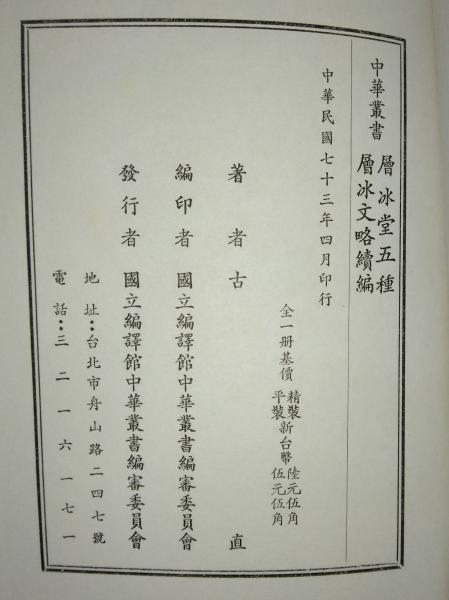 中華叢書
層冰堂五種
層冰文略續編
中華民國七十三年四月印行
全一册基價
精裝新台幣陸元伍角
平裝新台幣伍元伍角
著者古直
編印者國立編譯館中華叢書編審委員會
發行者國立編譯館中華叢書編審委員會
地址：台北市舟山路二四七號
電話：三二一六一七一